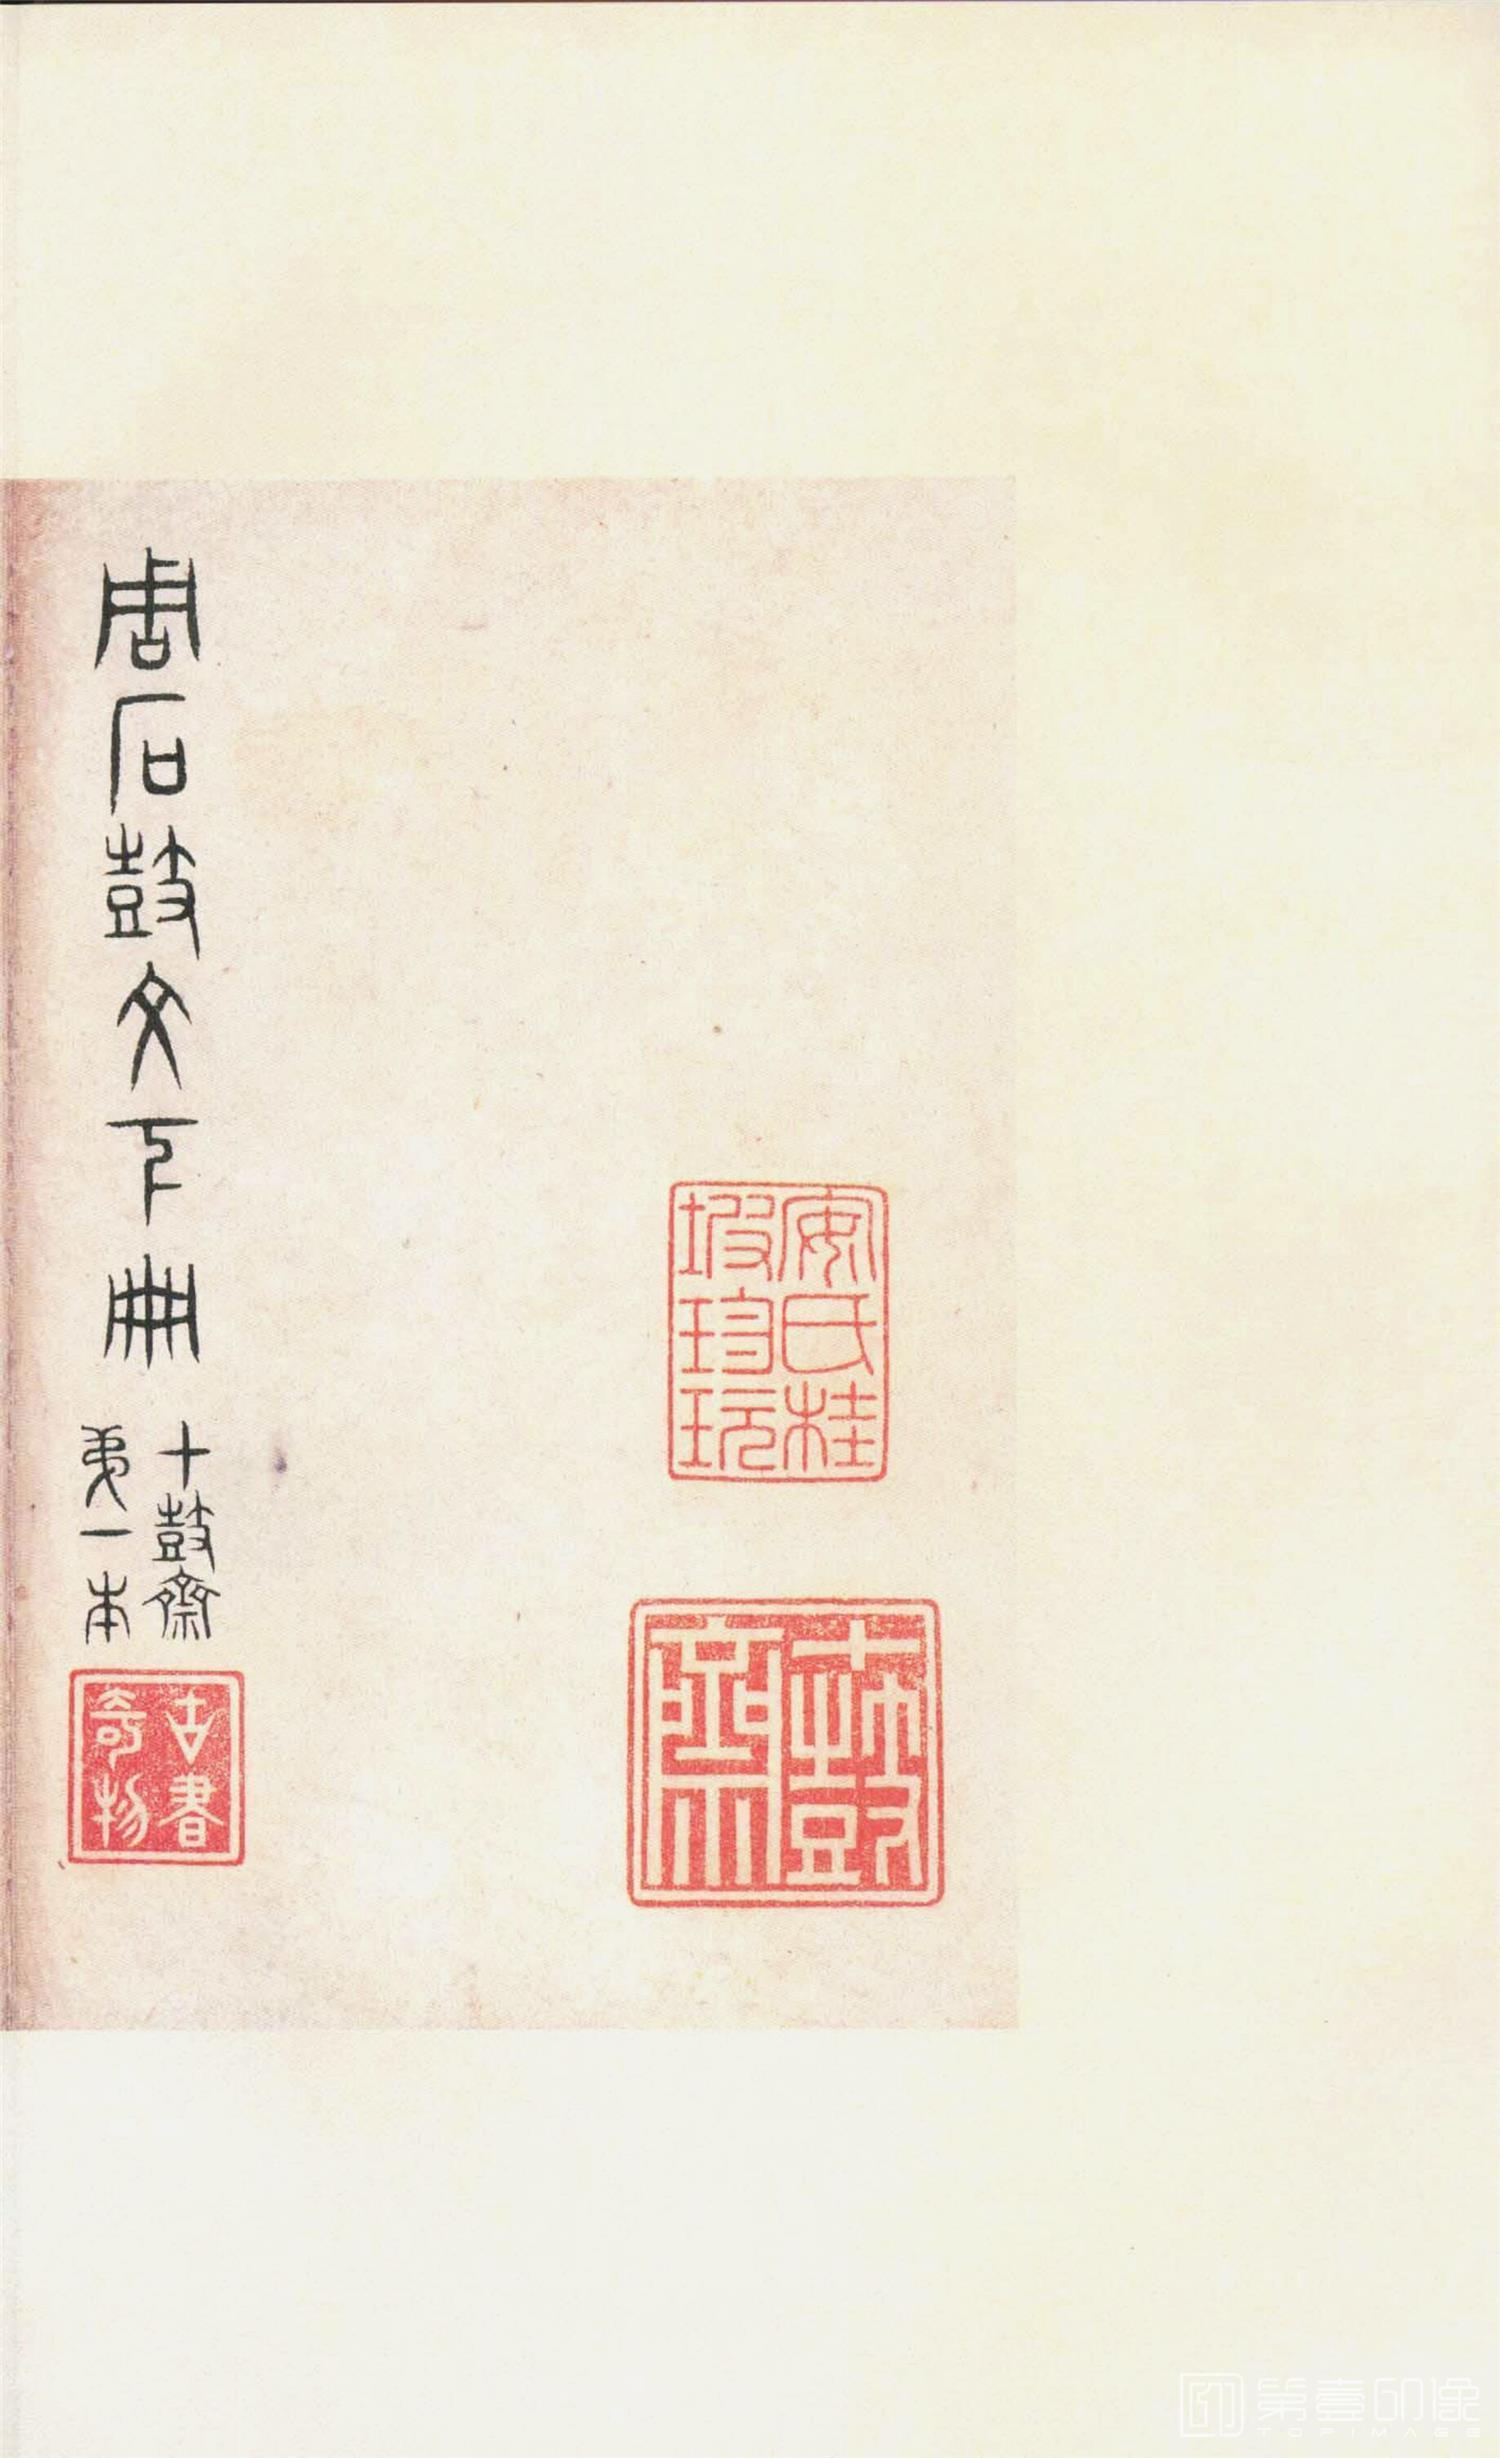 安氏桂
坡珍玩
十鼓
齋
周石鼓文下冊
十鼓齋
第一本
古書
奇物
第壹印像
TOPIMAGE